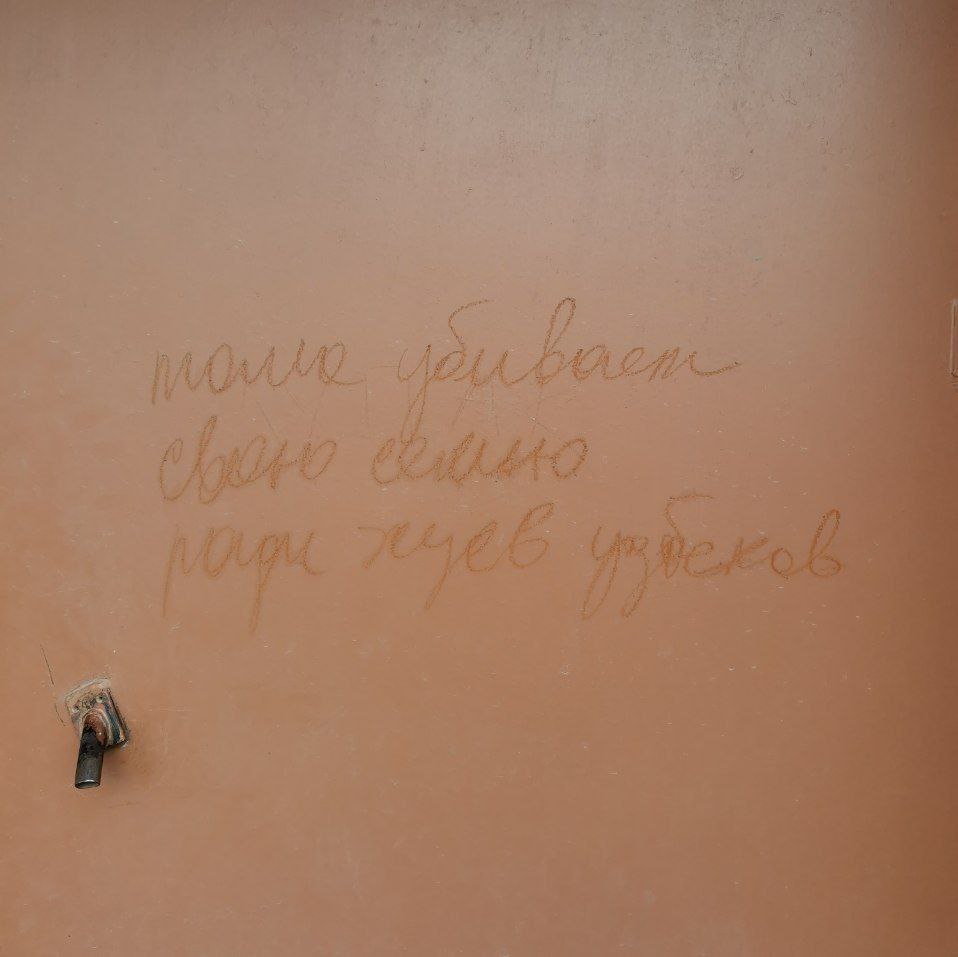 тома убивает
свою семью
ради хуев узбеков